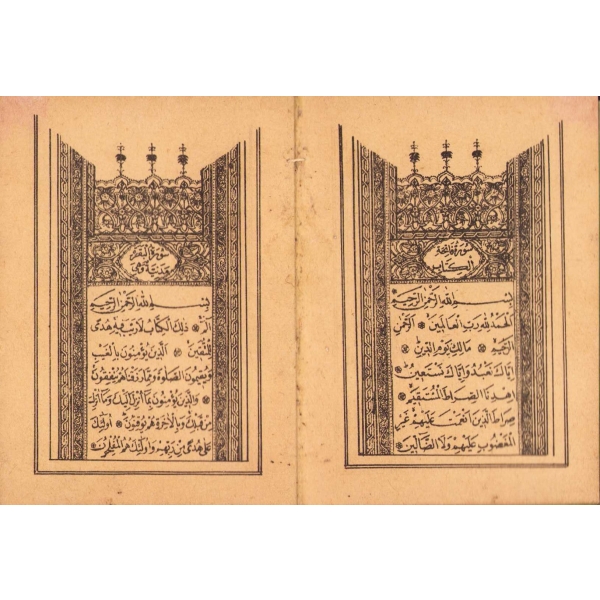 سورة فاتحة
الكتاب
بسم الله الرحمن الرحيم
الحمد لله رب العالمين ۞ الرحمن
الرحيم ۞ مالك يوم الدين ۞
اياك نعبد واياك نستعين ۞
اهدنا الصراط المستقيم ۞
صراط الذين انعمت عليهم غير
المغضوب عليهم ولا الضالين ۞
سورة البقرة
مدنية وهي
بسم الله الرحمن الرحيم
الم ۞ ذلك الكتاب لا ريب فيه هدى
للمتقين ۞ الذين يؤمنون بالغيب
ويقيمون الصلوة ومما رزقناهم ينفقون
۞ والذين يؤمنون بما انزل اليك وما انزل
من قبلك وبالآخرة هم يوقنون ۞ اولئك
على هدى من ربهم واولئك هم المفلحون ۞